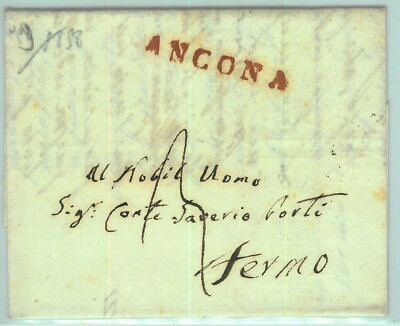 1838
ANCONA
Al Nobil Uomo
Sig.r Conte Saverio Porti
Fermo